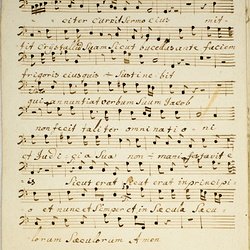 citer Currit Sermo eius mit-
tit Crystallū Suam Sicut buccellas ante faciem
frigoris eius quis Sustinebit
qui annuntiat verbum Suum Jacob
non fecit taliter omni natio ni
et Judicia Sua non manifestavit e
Sicut erat Sicut erat in principi
et nunc et Semper et in Sæcula Sæcu-
lorum Sæculorum Amen